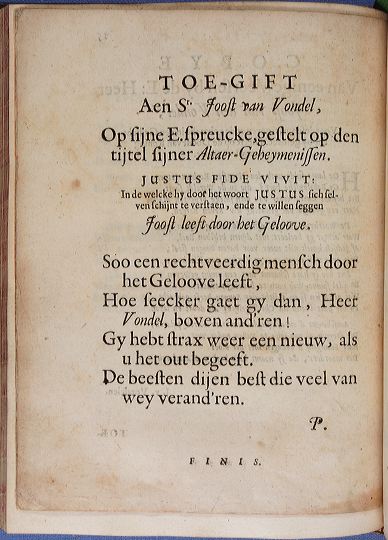 TOE-GIFT
Aen Sr. Joost van Vondel,
Op sijne E. spreucke, gestelt op den
tijtel sijner Altaer-Geheymenissen.
JUSTUS FIDE VIVIT.
In de welcke hy door het woort JUSTUS sich sel-
ven schijnt te verstaen, ende te willen seggen
Joost leeft door het Geloove.
Soo een rechtveerdig mensch door
het Geloove leeft,
Hoe seecker gaet gy dan, Heer
Vondel, boven and'ren!
Gy hebt strax weer een nieuw, als
u het out begeeft.
De beesten dijen best die veel van
wey verand'ren.
P.
FINIS.